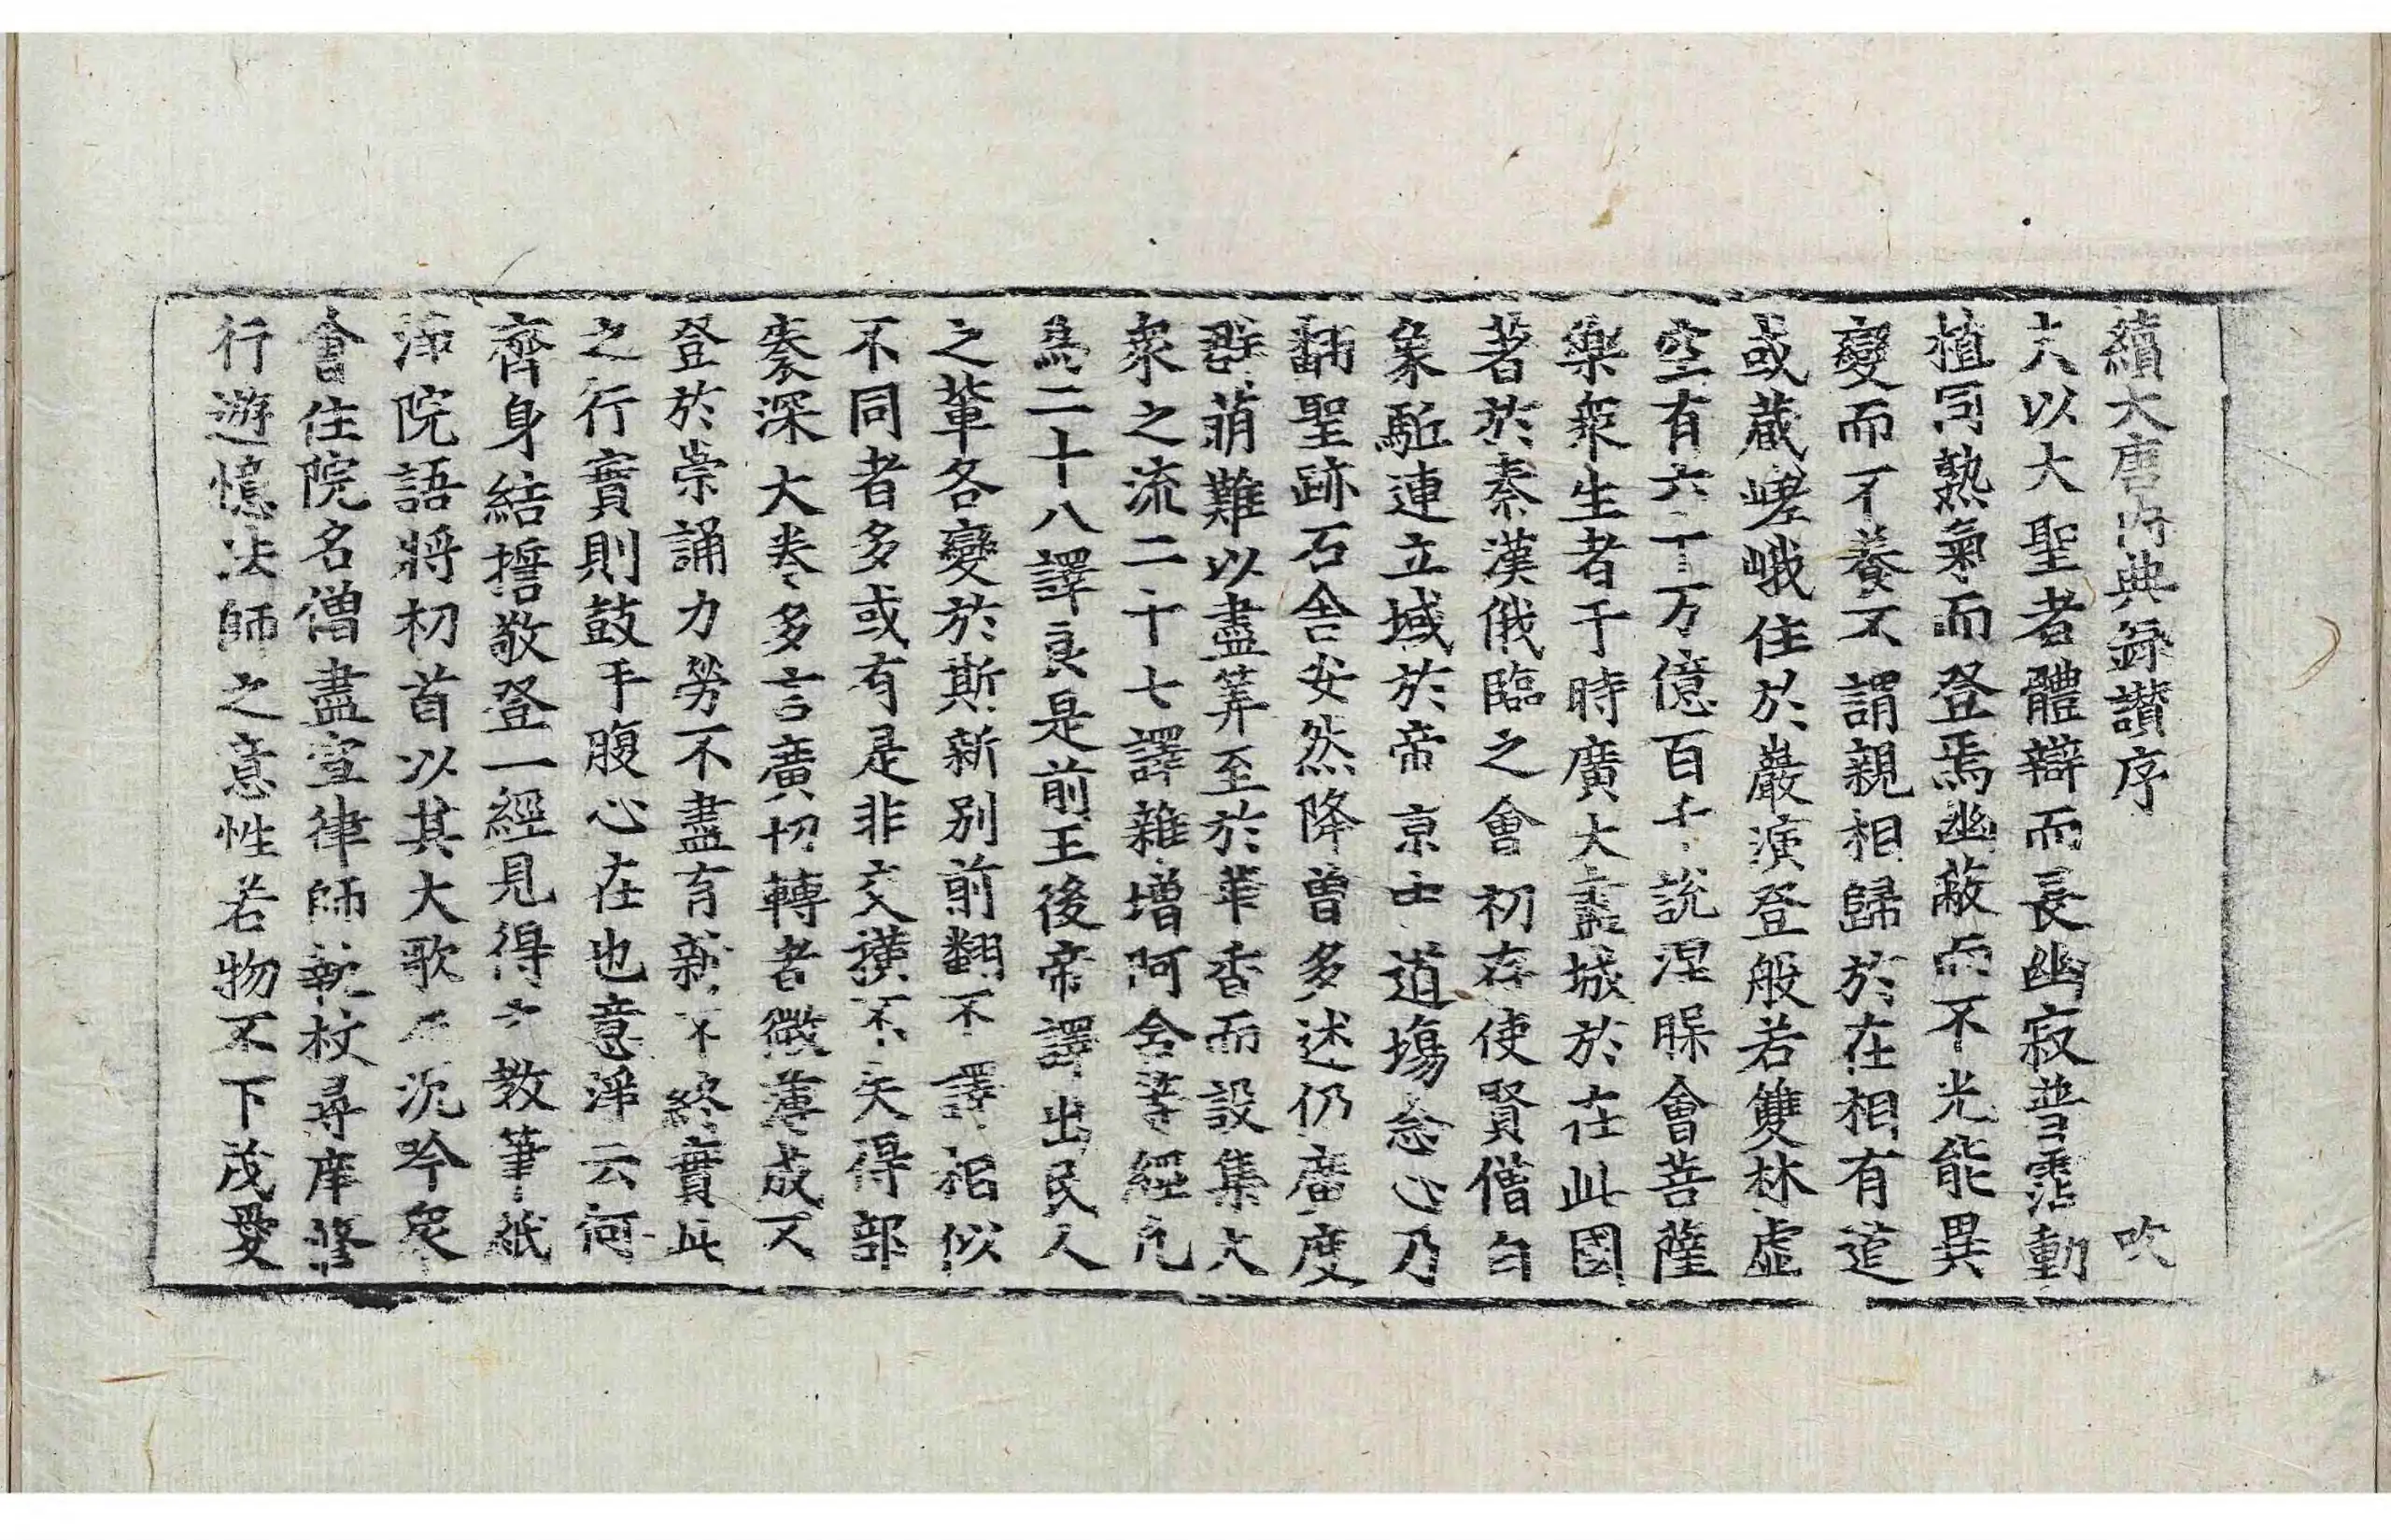 續大唐內典錄讚序 吹
夫以大聖者體辯而長幽寂普霑動
植同熟氣而登焉幽蔽而不光能異
變而不養不謂親相歸於在相有道
或藏嵯峨住於巖演登般若雙林虛
空有六十万億百千說涅槃會菩薩
樂衆生者于時廣大盡城於在此國
著於秦漢俄臨之會初存使賢僧白
象駈連立域於帝京士道塲念心乃
翻聖跡石舍安然降曾多述仍廣度
群萠難以盡筭至於華香而設集大
衆之流二十七譯雜增阿含等經凡
爲二十八譯良是前王後帝譯出民人
之輩各變於斯新別前翻不譯相似
不同者多或有是非文讃不失得部
奏深大卷多言廣切轉者微薄成又
登於崇誦力勞不盡有新不終實此
之行實則鼓手腹心在也意淨云何
齊身結誓敬登一經見得教筆祇
淨院語將初首以其大歌沉吟矣
會住院名僧盡宣律師執杖尋庠修
行遊憶法師之意性若物不下茂愛